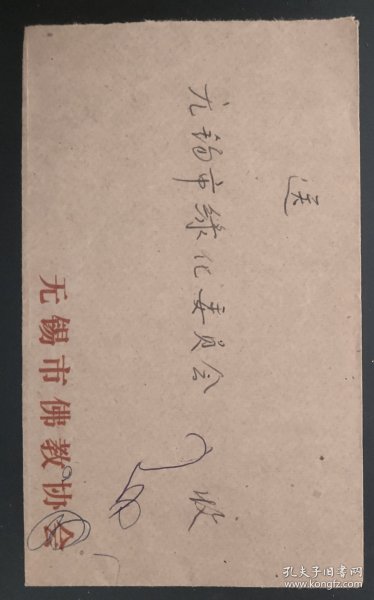 送
无锡市绿化委员会 收
无锡市佛教协会
孔夫子旧书网
www.kongfz.com